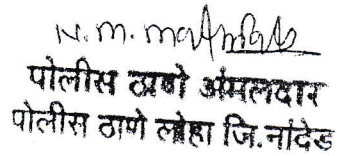 N. m.
पोलीस ठाणे अंमलदार
पोलीस ठाणे लोहा जि.नांदेड